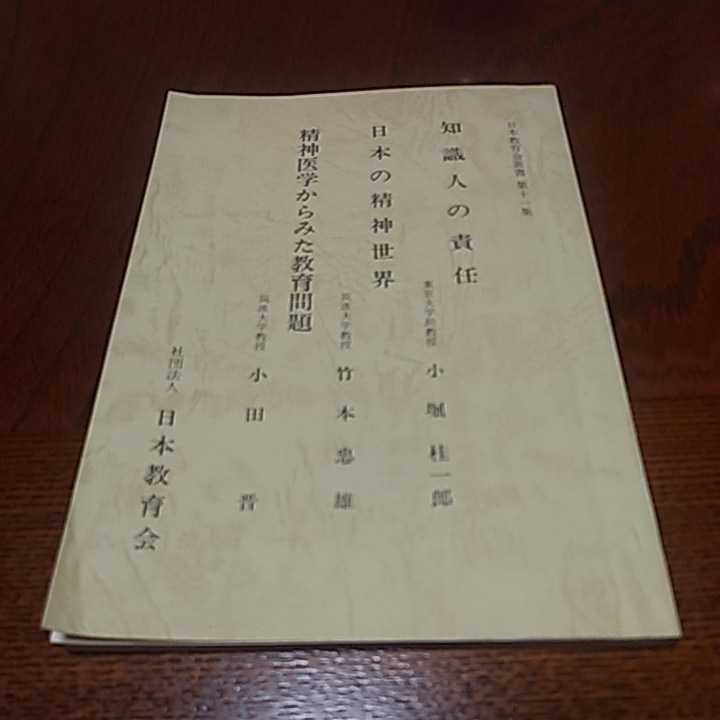 日本教育会叢書 第十一集
知識人の責任
東京大学助教授 小堀桂一郎
日本の精神世界
筑波大学教授 竹本忠雄
精神医学からみた教育問題
筑波大学教授 小田 晋
社団法人 日本教育会